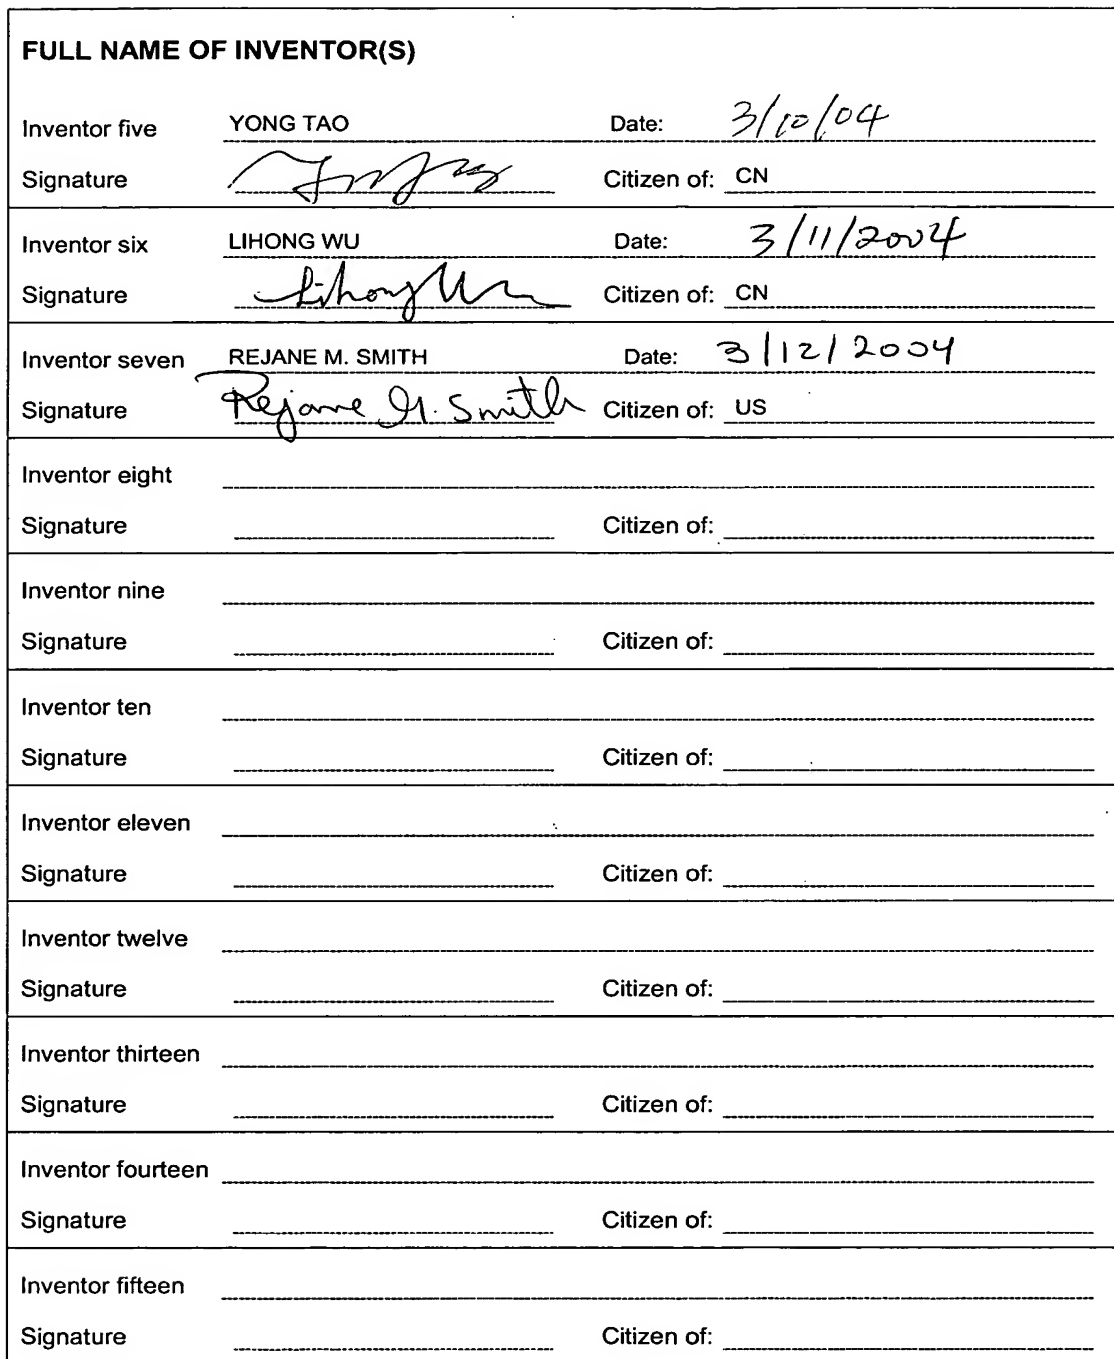 FULL NAME OF INVENTOR(S)
Inventor five YONG TAO Date: 3/10/04
Signature Citizen of: CN
Inventor six LIHONG WU Date: 3/11/2004
Signature Lihong Wu Citizen of: CN
Inventor seven REJANE M. SMITH Date: 3/12/2004
Signature Rejane M. Smith Citizen of: US
Inventor eight
Signature Citizen of:
Inventor nine
Signature Citizen of:
Inventor ten
Signature Citizen of:
Inventor eleven
Signature Citizen of:
Inventor twelve
Signature Citizen of:
Inventor thirteen
Signature Citizen of:
Inventor fourteen
Signature Citizen of:
Inventor fifteen
Signature Citizen of: